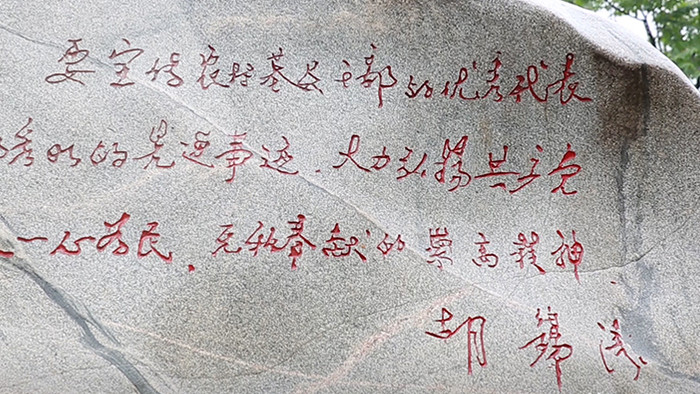 要宣传农村基层干部的优秀代表
的先进事迹，大力弘扬共产党
人一心为民、无私奉献的崇高精神。
胡锦涛